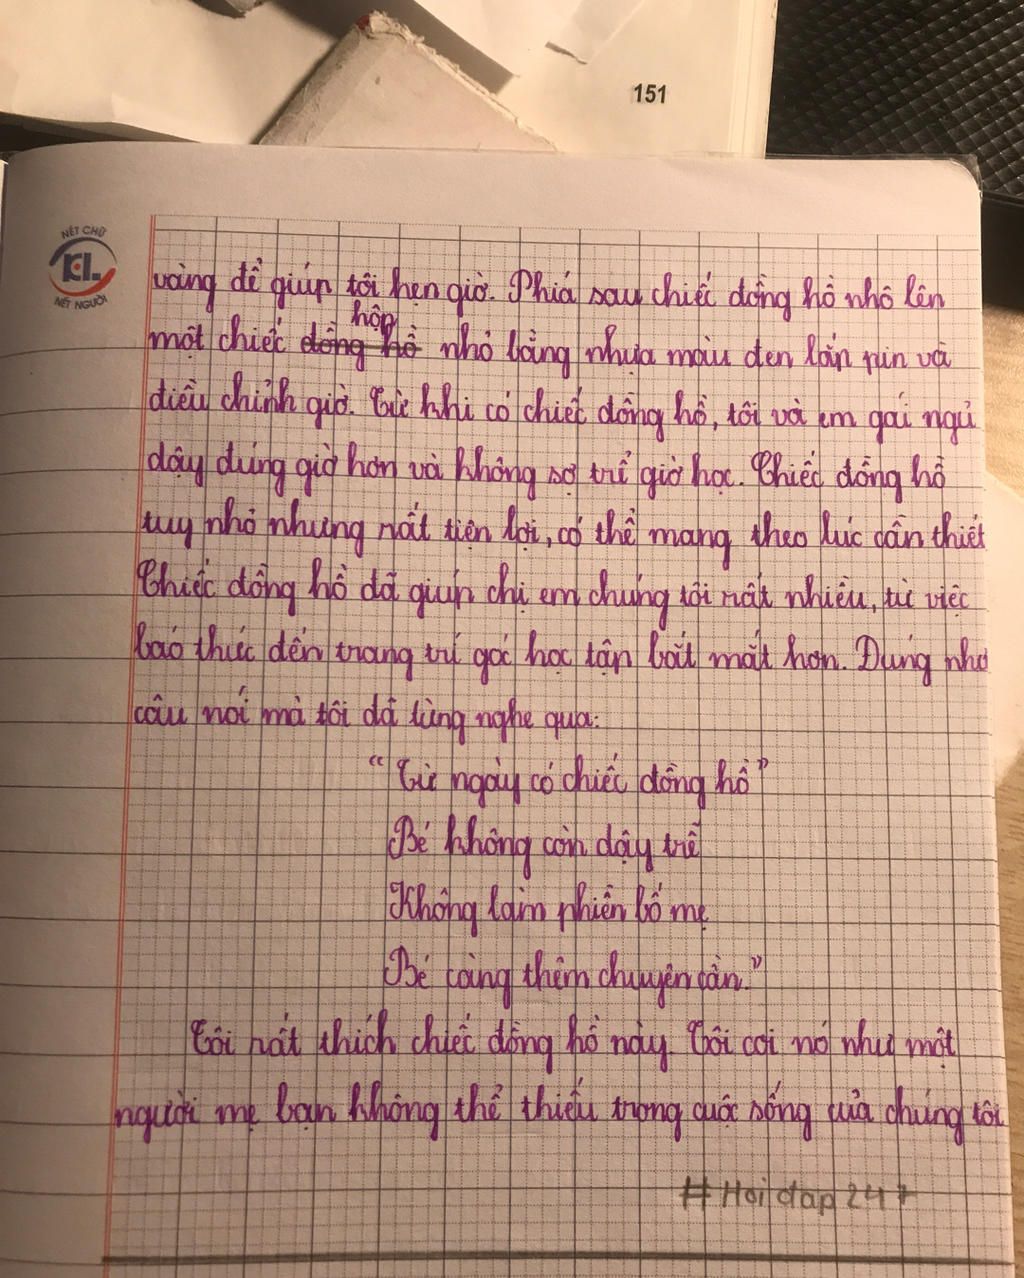 151
NÉT CHỮ
KL
NÉT NGƯỜI
vàng để giúp tôi hẹn giờ. Phiá sau chiếc đồng hồ nhô lên
hộp
một chiếc đồng hồ nhỏ bằng nhựa màu đen lắp pin và
điều chỉnh giờ. Từ khi có chiếc đồng hồ, tôi và em gái ngủ
dậy đúng giờ hơn và không sợ trễ giờ học. Chiếc đồng hồ
tuy nhỏ nhưng rất tiện lợi, có thể mang theo lúc cần thiết
Chiếc đồng hồ đã giúp chị em chúng tôi rất nhiều, từ việc
báo thức đến trang trí góc học tập bắt mắt hơn. Đúng như
câu nói mà tôi đã từng nghe qua:
"Từ ngày có chiếc đồng hồ"
Bé không còn dậy trễ
Không làm phiền bố mẹ
Bé càng thêm chuyên cần."
Tôi rất thích chiếc đồng hồ này. Tôi coi nó như một
người mẹ bạn không thể thiếu trong cuộc sống của chúng tôi
#Hoidap247